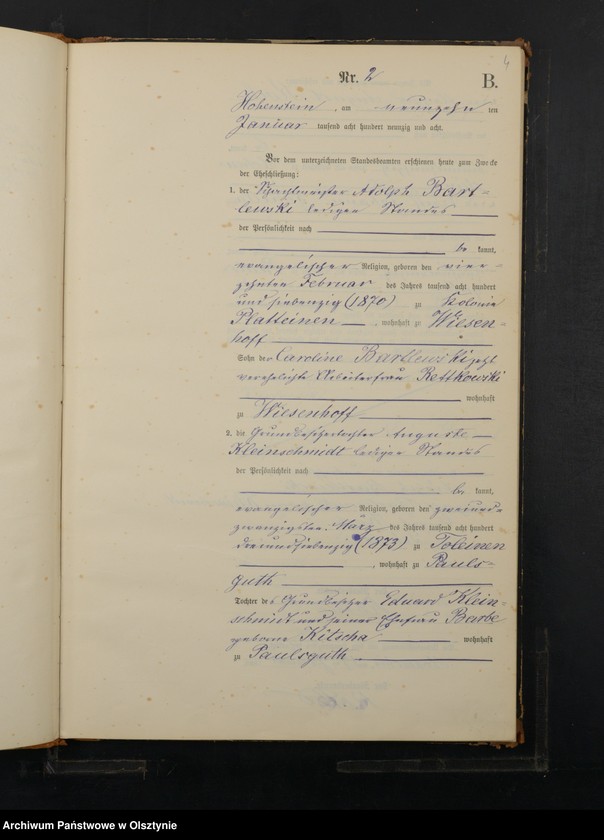 4
Nr. 2
B.
Hohenstein, am neunzehn ten
Januar tausend acht hundert neunzig und acht.
Vor dem unterzeichneten Standesbeamten erschienen heute zum Zwecke
der Eheschließung:
1. der Schachtmeister Adolph Bart-
lewski ledigen Standes
der Persönlichkeit nach
be kannt,
evangelischer Religion, geboren den vier-
zehnten Februar des Jahres tausend acht hundert
und siebenzig (1870) zu Kolonie
Platteinen, wohnhaft zu Wiesen-
hoff
Sohn der Caroline Bartlewski jetzt
verehelichte Arbeiterfrau Rettkowski
wohnhaft
zu Wiesenhoff
2. die Grundbesitzertochter Auguste
Kleinschmidt ledigen Standes
der Persönlichkeit nach
be kannt,
evangelischer Religion, geboren den zweiund-
zwanzigsten März des Jahres tausend acht hundert
dreiundsiebenzig (1873) zu Toleinen
, wohnhaft zu Pauls-
guth
Tochter des Grundbesitzer Eduard Klein
schmidt und seiner Ehefrau Barbe
geborne Kitscha wohnhaft
zu Paulsguth
Archiwum Państwowe w Olsztynie